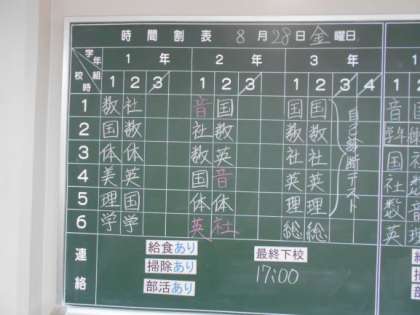 時間割表 8月28日 金曜日
学年 組 校時 1年 2年 3年
1 2 3 1 2 3 1 2 3 4
1 数 社 音 国 国 国
2 国 数 社 数 数 数
3 体 体 数 英 社 社
4 美 英 国 音 英 英
5 理 国 体 体 理 理
6 学 学 英 社 総 総
自己診断テスト
連絡
給食あり 最終下校
掃除あり 17:00
部活あり